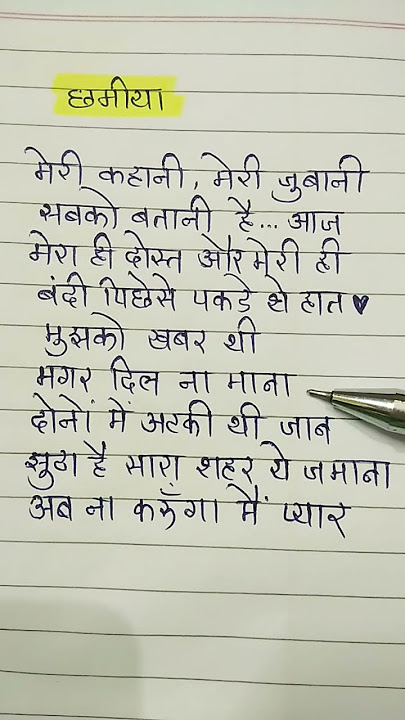 छमीया
मेरी कहानी, मेरी जुबानी
सबको बतानी है... आज
मेरा ही दोस्त और मेरी ही
बंदी पिछेसे पकड़े थे हात ♥
मुझको खबर थी
मगर दिल ना माना
दोनों में अटकी थी जान
झुठा है सारा शहर ये जमाना
अब ना करूँगा मैं प्यार